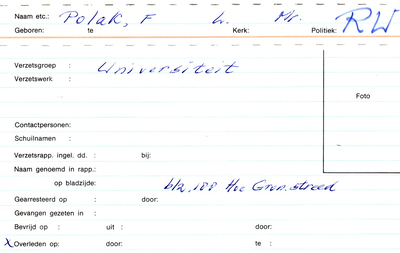 Naam etc.: Polak, F L. Mr. RW
Geboren: te Kerk: Politiek:
Verzetsgroep : Universiteit
Verzetswerk :
Foto
Contactpersonen:
Schuilnamen :
Verzetsrapp. ingel. dd. : bij:
Naam genoemd in rapp.:
op bladzijde: blz. 188 Hoe Gron. streed
Gearresteerd op : door:
Gevangen gezeten in :
Bevrijd op : uit : door:
X Overleden op: door: te :